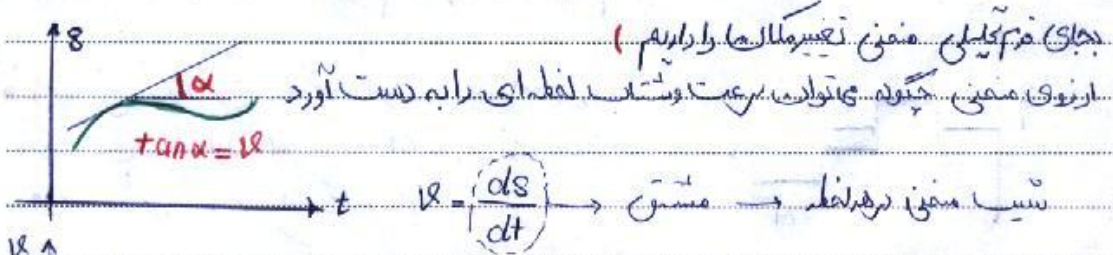 بجای فرم تحلیلی منحنی تغییر مکان ها را داریم )
از روی منحنی چگونه می توان سرعت و شتاب لحظه ای را به دست آورد
s
α
tan α = v
t
v = ds/dt → مشتق → شیب منحنی در هر لحظه
v